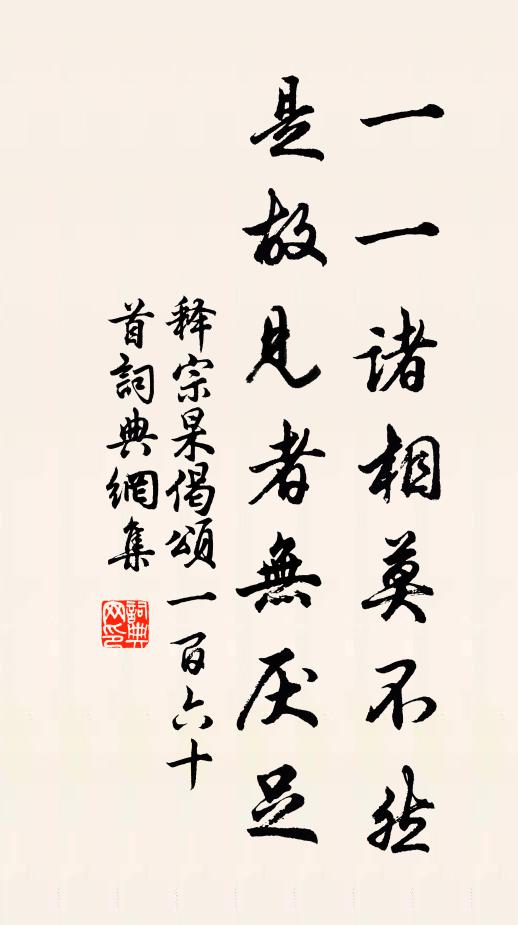 一一諸相莫不然
是故見者無厌足
释宗杲偈頌一百六十
首詞典網集
詞典
网印